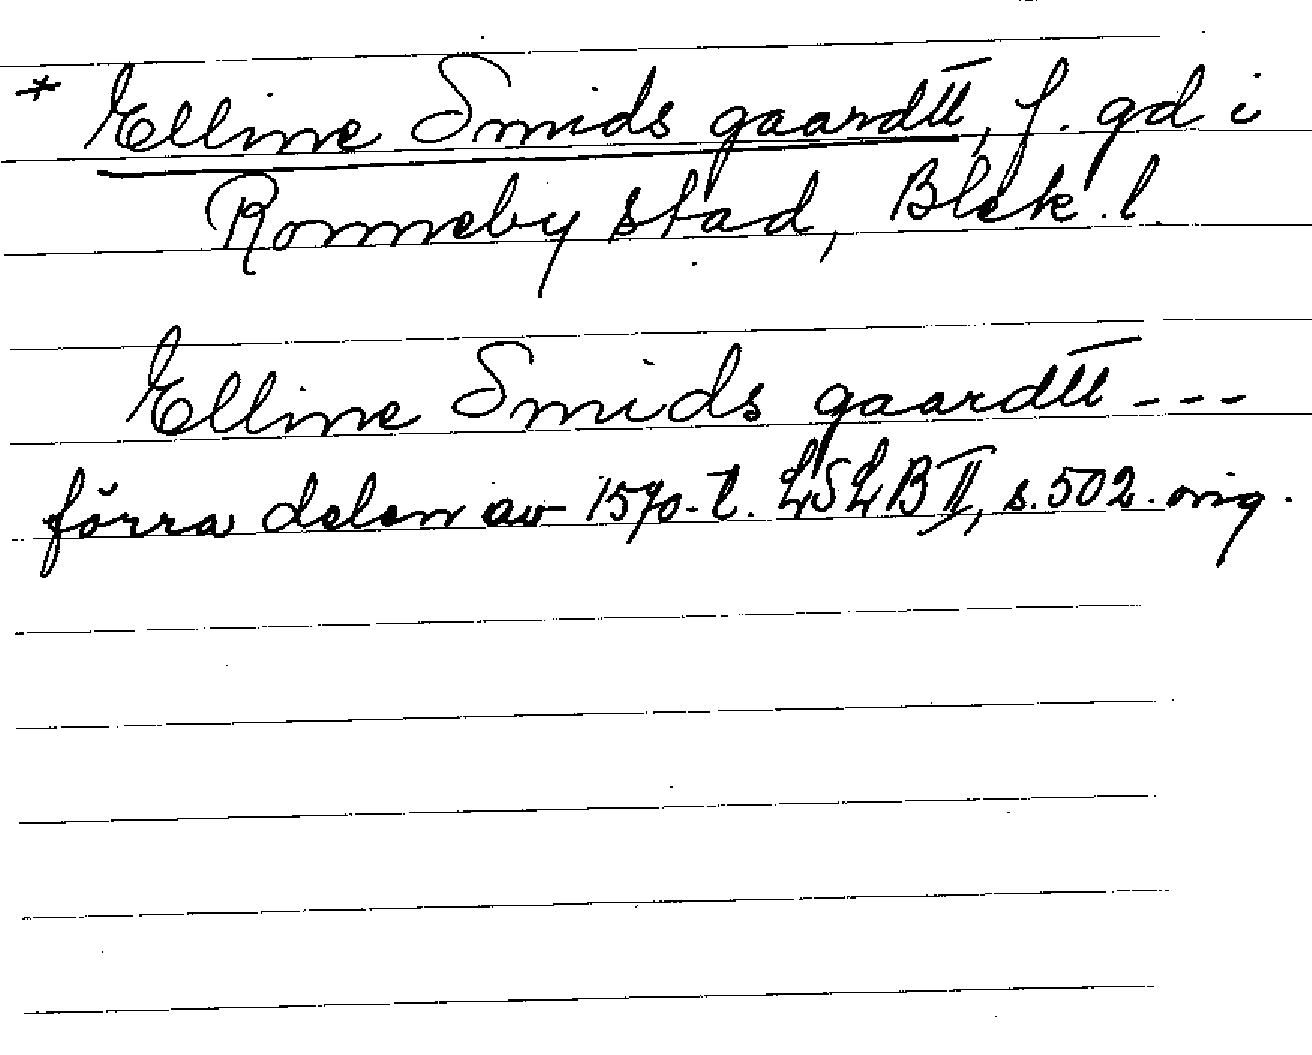 * Elline Smids gaardtt̄, f. gd i
Ronneby stad, Blek. l.
Elline Smids gaardtt̄ ---
förra delen av 1570-t. LSLB II, s. 502. orig.